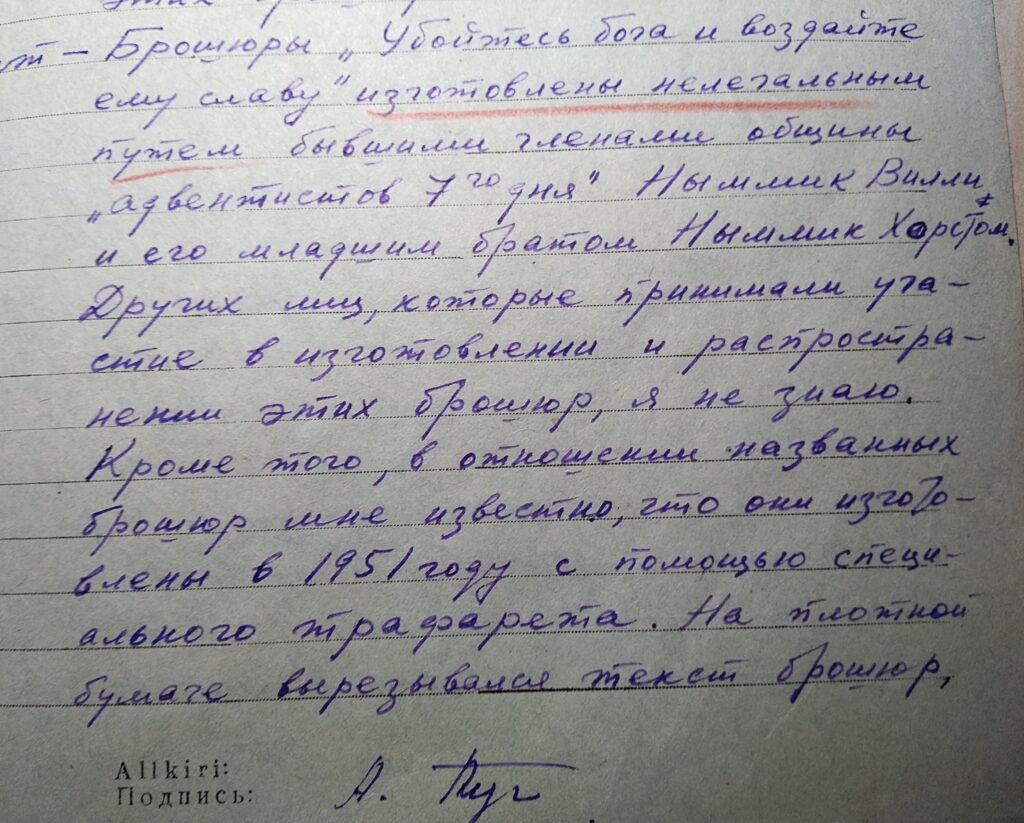 этих
т – Брошюры „Убойтесь бога и воздайте
ему славу" изготовлены нелегальным
путем бывшими членами общины
„адвентистов 7го дня" Ныммик Вилли
и его младшим братом Ныммик Хорстом.
Других лиц, которые принимали уча-
стие в изготовлении и распростра-
нении этих брошюр, я не знаю.
Кроме того, в отношении названных
брошюр мне известно, что они изгото-
влены в 1951 году с помощью специ-
ального трафарета. На плотной
бумаге вырезывался текст брошюр,
Allkiri:
Подпись: А.